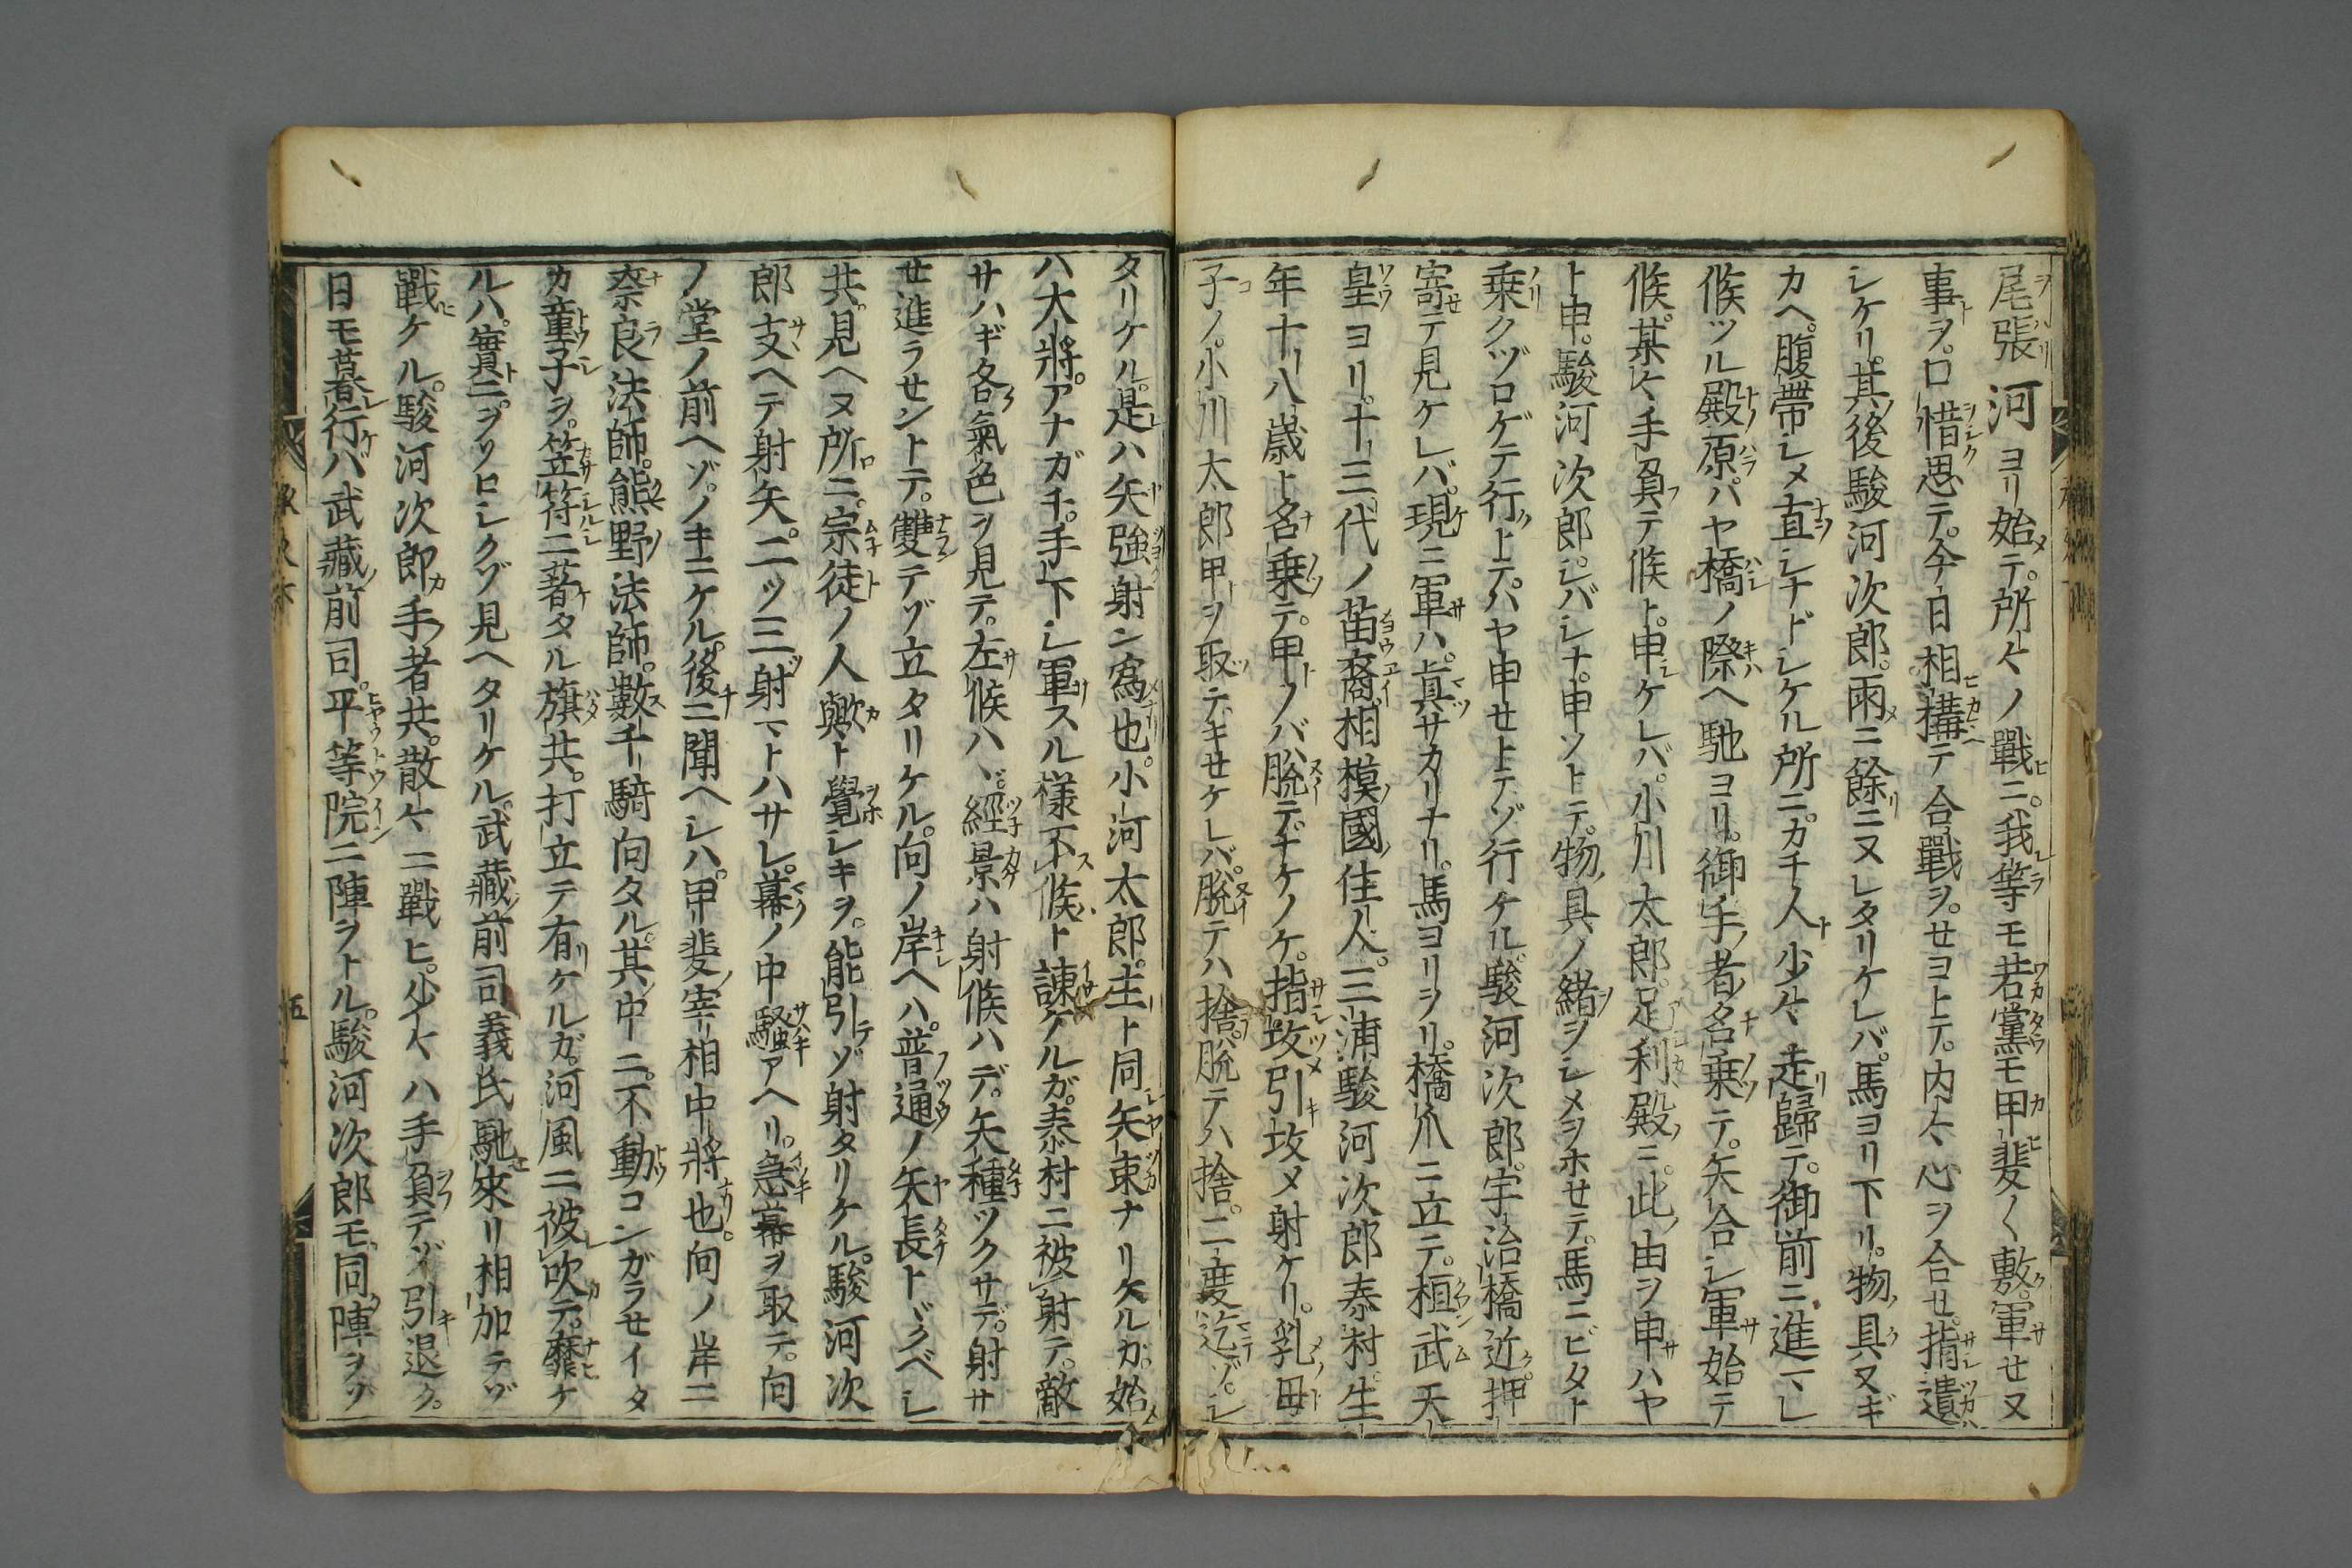 尾張河ヨリ始テ。所々ノ戰ニ。我等モ若黨モ甲斐〱敷。軍セヌ
事ヲ。口惜思テ。今日相構テ合戰ヲ。セヨトテ。内々心ヲ合セ。指遣
シケリ。其後駿河次郎。雨ニ餘ニヌレタリケレバ。馬ヨリ下リ。物具ヌギ
カヘ。腹帶シメ直シナドシケル所ニ。カチ人少々走歸テ。御前ニ進マレ
候ツル殿原ハヤ橋ノ際ヘ馳ヨリ。御手者名乗テ。矢合シ軍始テ
候。某々手負テ候ト。申ケレバ。小川太郎。足利殿ニ。此由ヲ申サハヤ
ト申。駿河次郎。シバシナ申ソトテ。物具ノ緒ヲシメヲホセテ。馬ニヒタト
乗クヅロゲテ行。上テ。ハヤ申セトテゾ行ケル。駿河次郎。宇治橋近押
寄テ見ケレバ。現ニ軍ハ。眞サカリナリ。馬ヨリヲリ。橋爪ニ立テ。桓武天
皇ヨリ。十三代ノ苗裔。相模國住人。三浦駿河次郎泰村。生
年十八歳ト名乗テ。甲ノバ脱デナケノケ。指攻引攻メ射ケリ。乳母
子ノ。小川太郎甲ヲ取テ。キセケレバ。脱テハ捨。脱テハ捨。二度迄ゾ。シ
タリケル。是ハ矢強射ン爲也。小河太郎。主ト同矢束ナリケルカ。始
ハ大將。アナガチ。手下シ軍スル様不候ト諫ケルガ。泰村ニ被射テ。敵
サハギ各氣色ヲ見テ。左候ハヾ。經景ハ射候ハデ。矢種ツクサデ。射サ
せ進ラせントテ。雙テゾ立タリケル。向ノ岸ヘハ。普通ノ矢長トヾクベシ
共。見ヘヌ所ニ。宗徒ノ人歟ト覺シキヲ。能引テゾ射タリケル。駿河次
郎支ヘテ射矢。二ツ三射マトハサレ。幕ノ中騒アヘリ。急幕ヲ取テ。向
ノ堂ノ前ヘゾ。ノキニケル。後ニ聞ヘシハ。甲斐宰相中將也。向ノ岸ニ
奈良法師。熊野法師。數千騎向タル。其中ニ。不動コンガラせイタ
カ童子ヲ。笠符ニ著タル旗共。打立テ有ケルガ。河風ニ被吹テ。靡ケ
ルハ。實ニ。ヲソロシクゾ見ヘタリケル。武藏前司義氏馳來リ相加テゾ
戰ケル。駿河次郎手者共。散々ニ戰ヒ。少々ハ手負テゾ引退ク。
日モ暮行バ武藏前司。平等院ニ陣ヲトル。駿河次郎モ。同陣ヲゾ